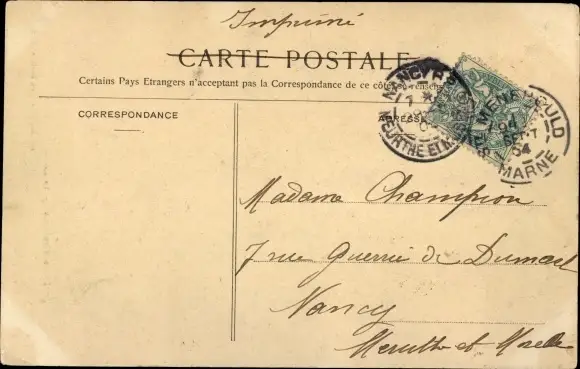 Imprimé
CARTE POSTALE
Certains Pays Etrangers n'acceptant pas la Correspondance de ce côté
CORRESPONDANCE
ADRESSE
NANCY
MEURTHE ET M
MENEHOULD
SEPT
04
MARNE
Madame Champion
7 rue Guerrier de Dumast
Nancy
Meurthe et Moselle